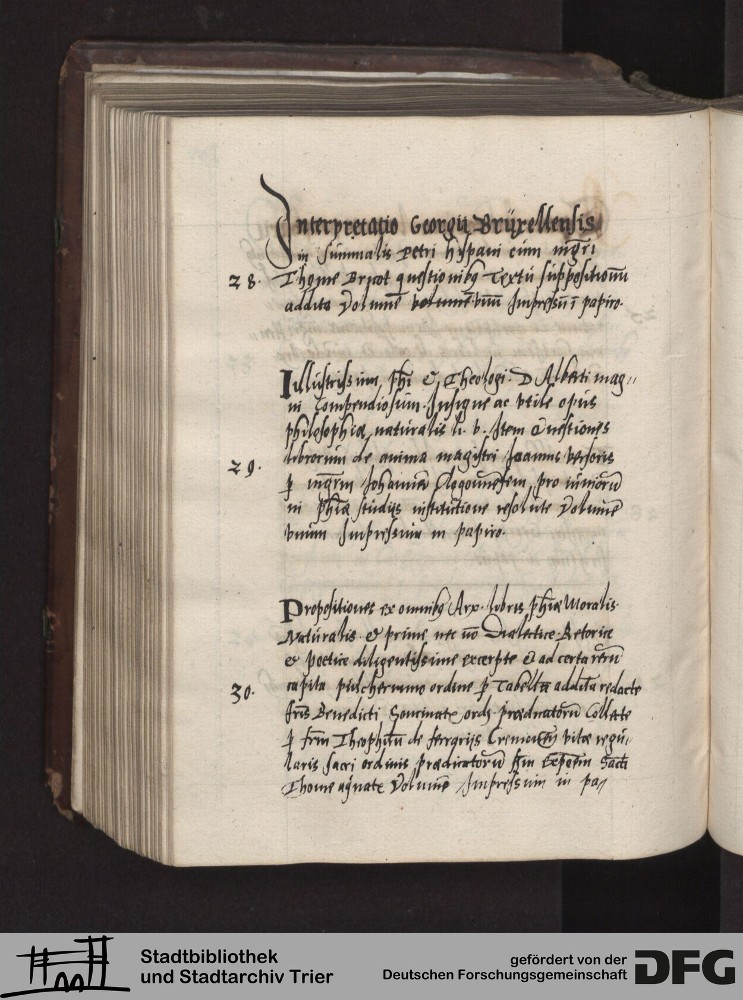 Interpretatio Georgii Brüxellensis
in summulis Petri hispani cum mgri
28. Thome Bricot questionibꝯ Textu suppositionū
addito Volumē vnū Impressū ī papiro.
Illustrissimi phi & Theologi. D Alberti mag
ni Compendiosum. Insigne ac vtile opus
philosophiæ naturalis li. v. Item Questiones
29. librorum de anima magistri Joannis versoris
ꝑ mgrm Johannē pro iuniorū
in phīa studijs institutione resolute Volumē
vnum Impressum in papiro.
Propositiones ex omnibꝯ Arx. libris phīæ Moralis
Naturalis & prime nec nō Dialectice Retorice
& poetice diligentissime excerpte & ad certa rerū
30. capita pulcherrimo ordine ꝑ Tabellā additā redacte
fris Benedicti Soncinate ords prædicatorū Collecte
ꝑ frm Theophilū de ferrarijs Cremonēn vitæ regu
laris sacri ordinis prædicatorū scdm Expoem Sacti
Thome aqnate Volumē Impressum in pa
Stadtbibliothek
und Stadtarchiv Trier
gefördert von der
Deutschen Forschungsgemeinschaft
DFG